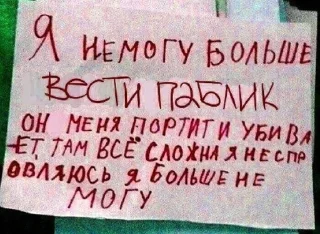 Я НЕМОГУ БОЛЬШЕ
ВЕСТИ ПАБЛИК
ОН МЕНЯ ПОРТИТ И УБИВА
ЕТ ТАМ ВСЁ СЛОЖНА Я НЕ СПР
ОВЛЯЮСЬ Я БОЛЬШЕ НЕ
МОГУ